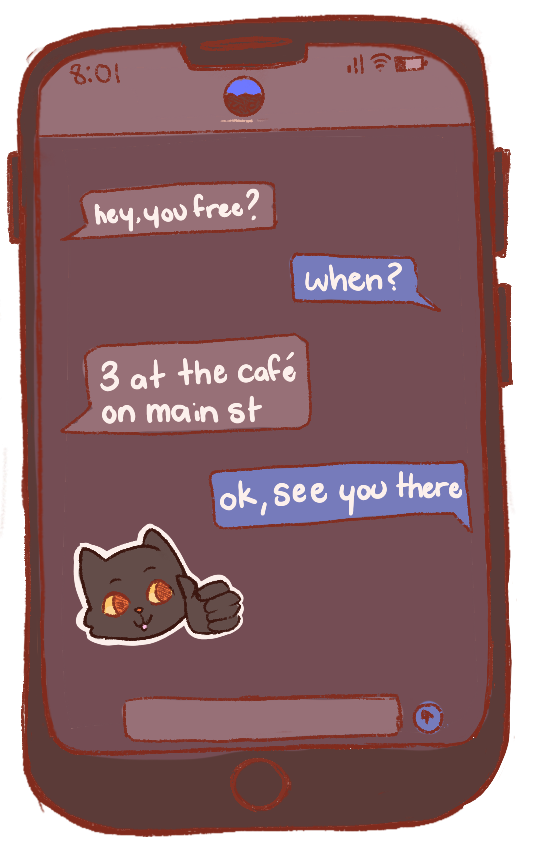 8:01
hey, you free?
when?
3 at the café
on main st
ok, see you there